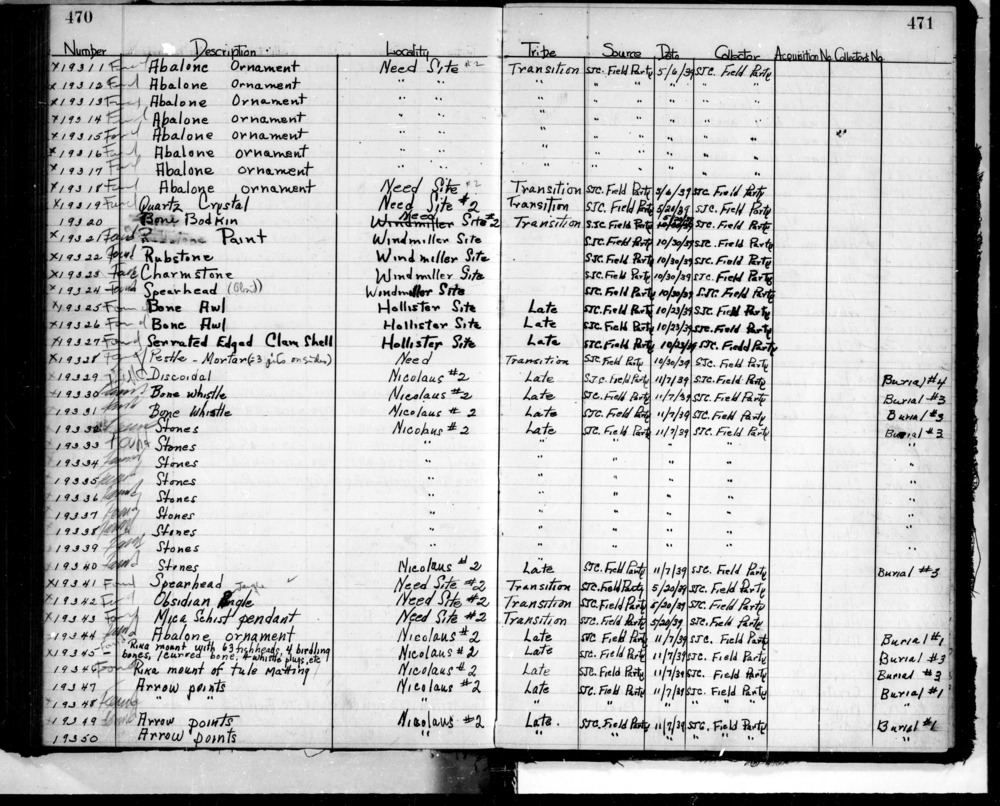 470
471
Number Description Locality Tribe Source Date Collector Acquisition No. Collectors No.
X19311 Found Abalone Ornament Need Site #2 Transition SJC. Field Party 5/6/39 SJC. Field Party
X19312 Found Abalone Ornament " " " " " " " "
X19313 Found Abalone Ornament " " " " " " " "
X19314 Found Abalone ornament " " " " " " " "
X19315 Found Abalone ornament " " " " " " " "
X19316 Found Abalone ornament " " " " " " " "
X19317 Found Abalone ornament " " " " " " " "
X19318 Found Abalone ornament Need Site #2 Transition SJC. Field Party 5/6/39 SJC. Field Party
X19319 Found Quartz Crystal Need Site #2 Transition SJC. Field Party 5/20/39 SJC. Field Party
19320 Bone Bodkin Windmiller Need Site #2 Transition SJC. Field Party 10/30/39 SJC. Field Party
X19321 Found Paint Windmiller Site SJC. Field Party 10/30/39 SJC. Field Party
X19322 Found Rubstone Windmiller Site SJC. Field Party 10/30/39 SJC. Field Party
X19323 Charmstone Windmiller Site SJC. Field Party 10/30/39 SJC. Field Party
X19324 Found Spearhead Windmiller Site SJC. Field Party 10/30/39 SJC. Field Party
X19325 Found Bone Awl Hollister Site Late SJC. Field Party 10/23/39 SJC. Field Party
X19326 Found Bone Awl Hollister Site Late SJC. Field Party 10/23/39 SJC. Field Party
X19327 Found Serrated Edged Clam Shell Hollister Site Late SJC. Field Party 10/23/39 SJC. Field Party
X19328 Found Pestle - Mortar (63 pits on sides) Need Transition SJC. Field Party 10/30/39 SJC. Field Party
X19329 Discoidal Nicolaus #2 Late SJC. Field Party 11/7/39 SJC. Field Party Burial #4
X19330 Found Bone whistle Nicolaus #2 Late SJC. Field Party 11/7/39 SJC. Field Party Burial #3
19331 Found Bone Whistle Nicolaus #2 Late SJC. Field Party 11/7/39 SJC. Field Party Burial #3
19332 Found Stones Nicolaus #2 Late SJC. Field Party 11/7/39 SJC. Field Party Burial #3
19333 Found Stones " " " " "
19334 Found Stones " " " " "
19335 Found Stones " " " " "
19336 Found Stones " " " " "
19337 Found Stones " " " " "
19338 Found Stones " " " " "
19339 Found Stones " " " " "
19340 Found Stones Nicolaus #2 Late SJC. Field Party 11/7/39 SJC. Field Party Burial #3
X19341 Found Spearhead Need Site #2 Transition SJC. Field Party 5/20/39 SJC. Field Party
X19342 Found Obsidian Angle Need Site #2 Transition SJC. Field Party 5/20/39 SJC. Field Party
X19343 Found Mica Schist pendant Need Site #2 Transition SJC. Field Party 5/20/39 SJC. Field Party
19344 Found Abalone ornament Nicolaus #2 Late SJC. Field Party 11/7/39 SJC. Field Party Burial #1
X19345 Rika mount with 63 fishheads, 4 birdling
bones, 1 curved bone, 4 whistle plugs, etc Nicolaus #2 Late SJC. Field Party 11/7/39 SJC. Field Party Burial #3
19346 Found Rika mount of tule matting Nicolaus #2 Late SJC. Field Party 11/7/39 SJC. Field Party Burial #3
19347 Arrow points Nicolaus #2 Late SJC. Field Party 11/7/39 SJC. Field Party Burial #1
19348 Found " " " " "
19349 Found Arrow points Nicolaus #2 Late. SJC. Field Party 11/7/39 SJC. Field Party Burial #1
19350 Arrow points " " " "